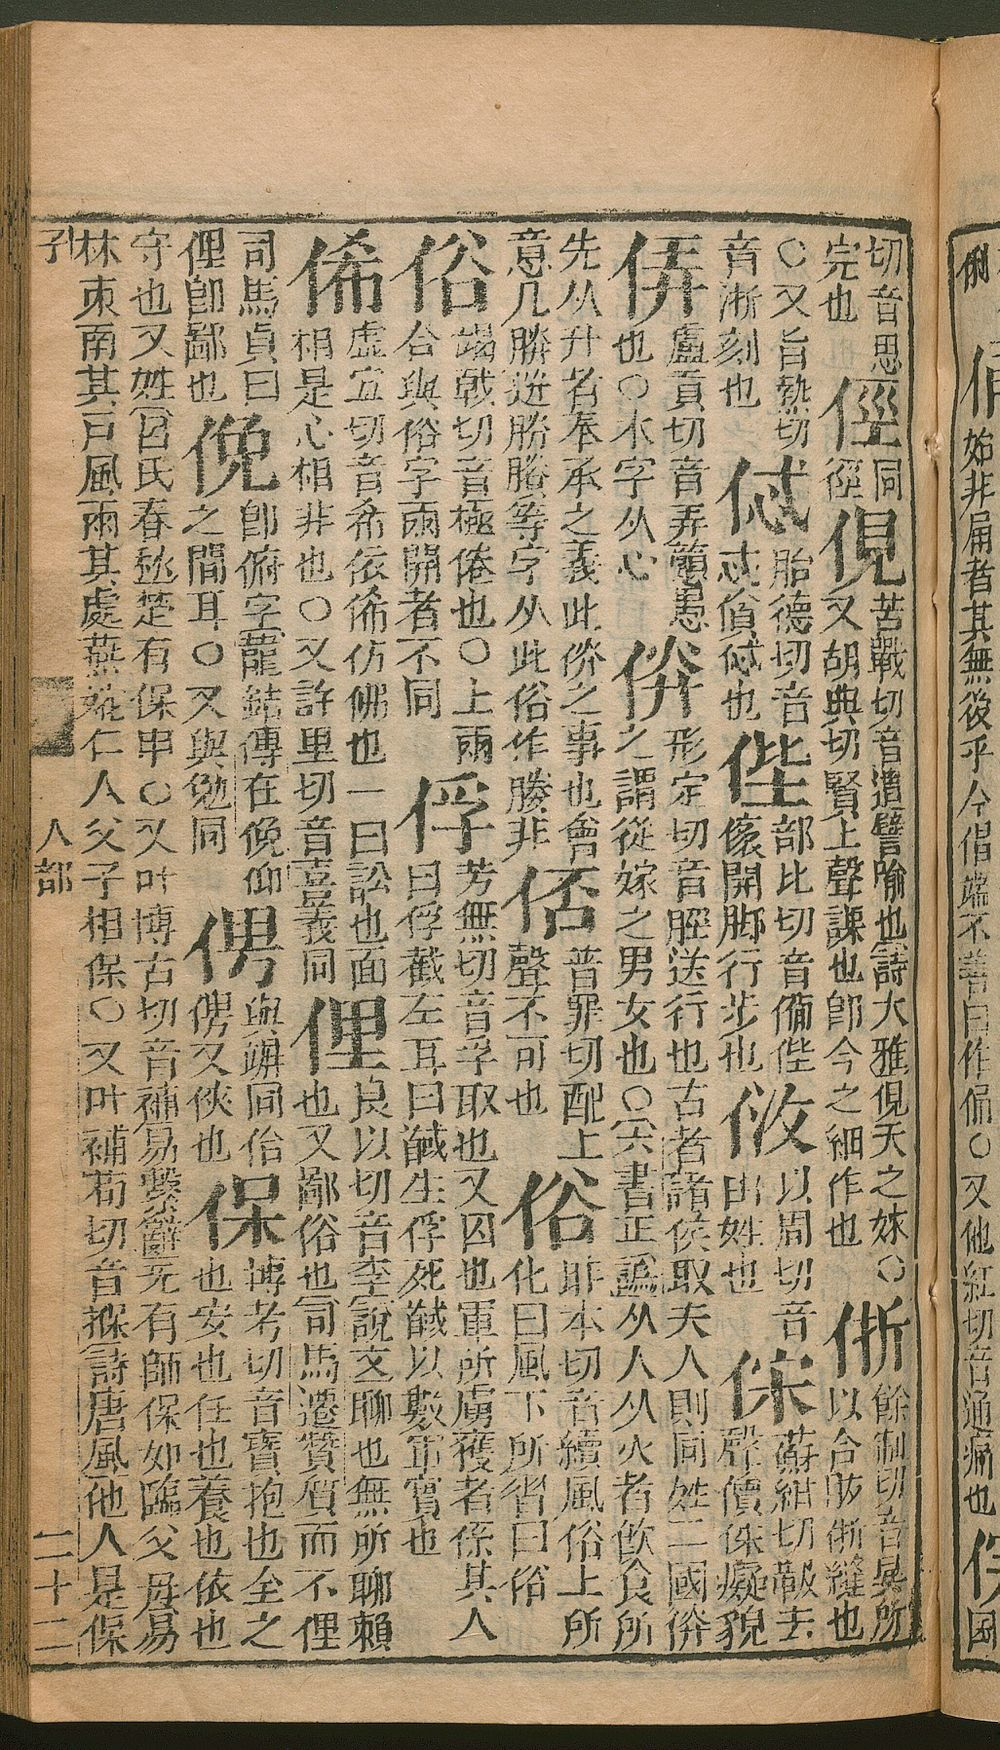 切音思
完也
俓
同
徑
俔
苦戰切音遣譬喻也詩大雅俔天之妹○
又胡典切賢上聲諜也卽今之細作也
㑜
餘制切音曳所
以合版㑜縫也
○又旨熱切
音淅刻也
㑷
胎德切音
忒貣㑷也
㒀
部比切音備㒀
儓開脚行步也
㑽
以周切音
由姓也
俕
蘇紺切毿去
聲儥俕癡貌
㑝
盧貢切音弄𢤱愚
也○本字从心
侎
形定切音脛送行也古者諸侯取夫人則同姓二國㑞
之謂從嫁之男女也○六書正譌从人从火者飲食所
先从升者奉承之義此㑞之事也會
意凡勝媵勝賸等字从此俗作勝非
俖
普罪切配上
聲不可也
俗
胙本切音續風俗上所
化曰風下所習曰俗
俗
竭戟切音極倦也○上兩
合與俗字兩開者不同
俘
芳無切音孚取也又囚也軍所虜獲者係其人
曰俘截左耳曰馘生俘死馘以數軍實也
俙
虛宜切音希依俙仿佛也一曰訟也面
相是心相非也○又許里切音喜義同
俚
良以切音李說文聊也無所聊賴
也又鄙俗也司馬遷贊質而不俚
司馬貞曰
俚卽鄙也
俛
卽俯字龍錯傳在俛仰
之間耳○又與勉同
俜
與娉同伶
俜又俠也
保
博考切音寶抱也全之
也安也任也養也依也
守也又姓呂氏春秋楚有保申○又叶博古切音補易繫辭无有師保如臨父母易
林東南其戸風雨其處燕婉仁人父子相保○又叶補茍切音探詩唐風他人是保
子 人部 二十二
始非扁者其無後乎今倡端不善曰作俑○又他紅切音通痛也